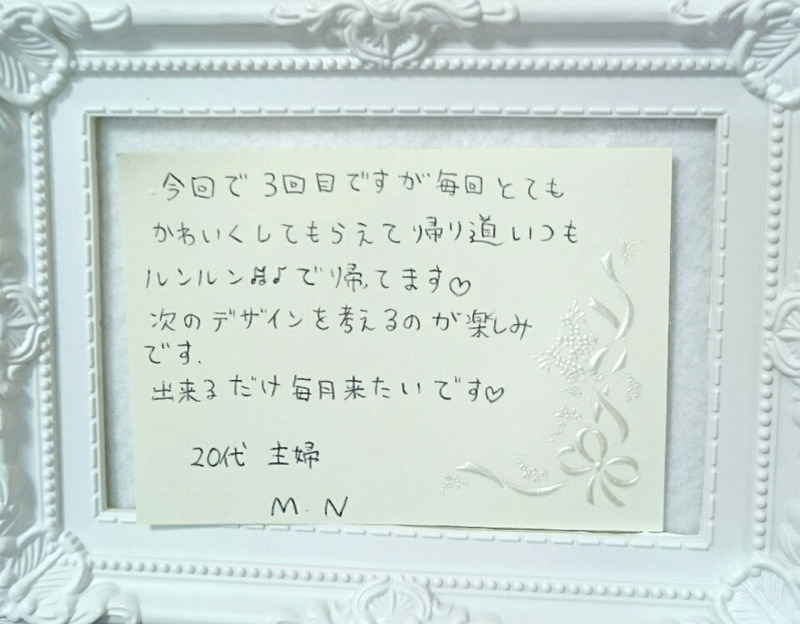 今回で3回目ですが毎回とても
かわいくしてもらえて帰り道いつも
ルンルン♫♪で帰てます♡
次のデザインを考えるのが楽しみ
です.
出来るだけ毎月来たいです♡
20代 主婦
M.N